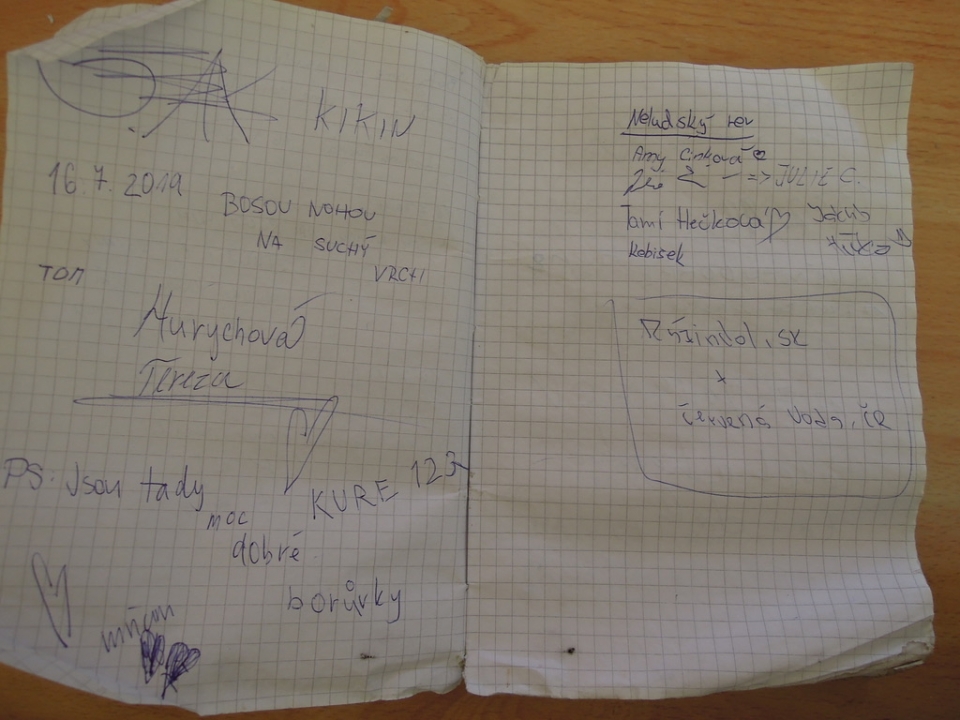 KIKIN
16.7. 2019
BOSOU NOHOU
NA SUCHÝ
VRCH
TOM
Hurychová
Tereza
PS: Jsou tady
moc
dobré
borůvky
KURE 123
Neludský rev
Amy Cinková
=> JULIE C.
Tami Hečková Jakub
Kobisek
Růžindol, SK
+
červená Voda, ČR